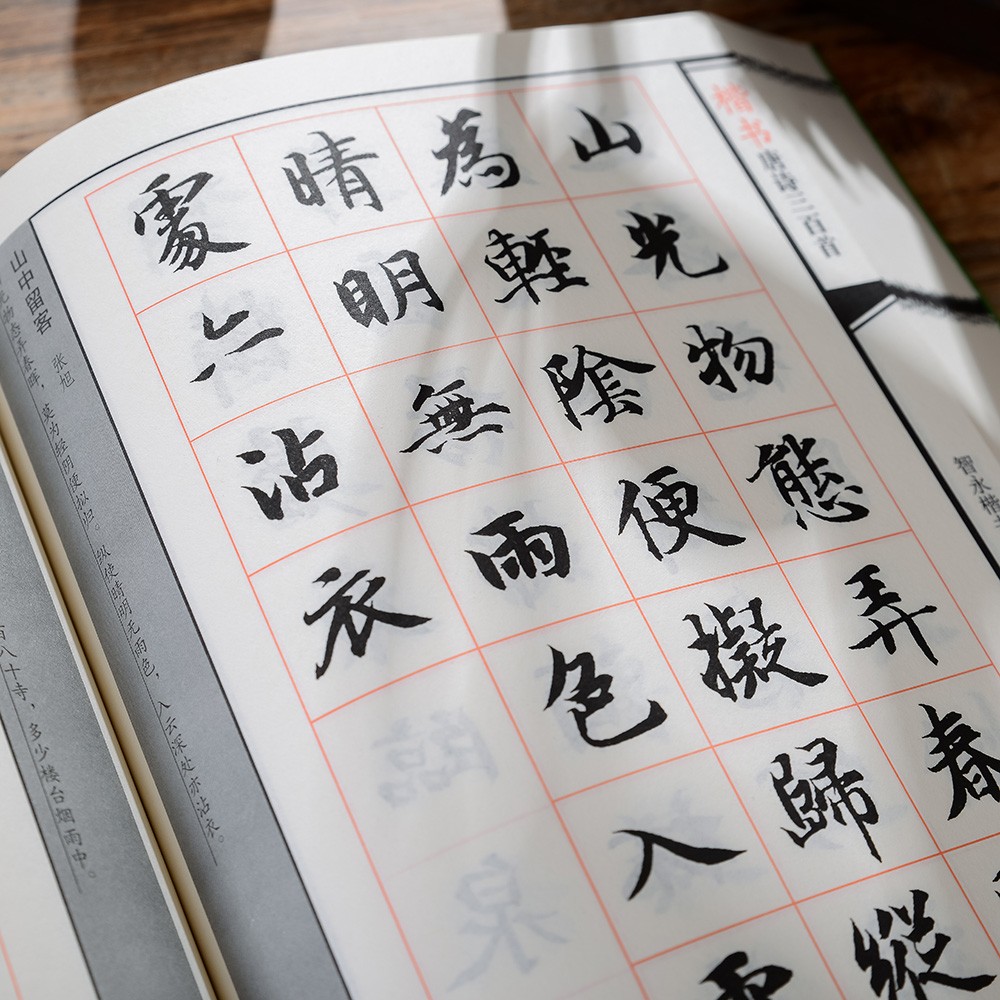 楷书
唐诗三百首
智永楷
山光物態弄春
為輕陰便擬歸縱
晴明無雨色入雲
處亦沾衣
山中留客 张旭
光物态弄春晖，莫为轻阴便拟归。纵使晴明无雨色，入云深处亦沾衣。
百八十寺，多少楼台烟雨中。